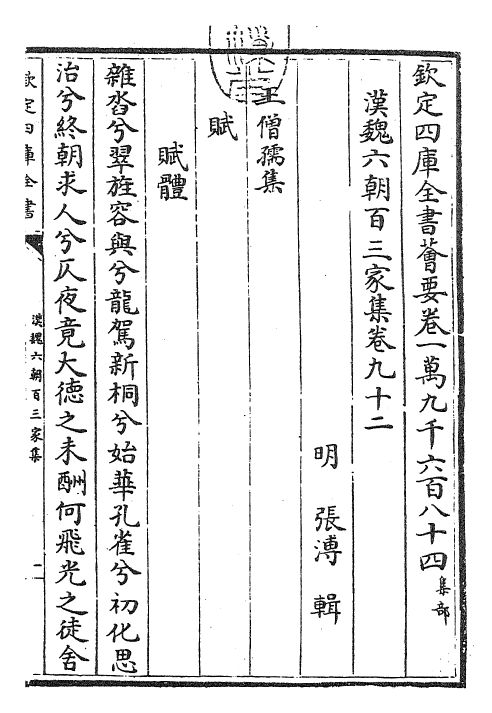 欽定四庫全書薈要卷一萬九千六百八十四 集部
漢魏六朝百三家集卷九十二
明 張溥 輯
王僧孺集
賦
賦體
雜沓兮翠旌容與兮龍駕新桐兮始華孔雀兮初化思
治兮終朝求人兮仄夜竟大德之未酬何飛光之徒舍
欽定四庫全書
漢魏六朝百三家集